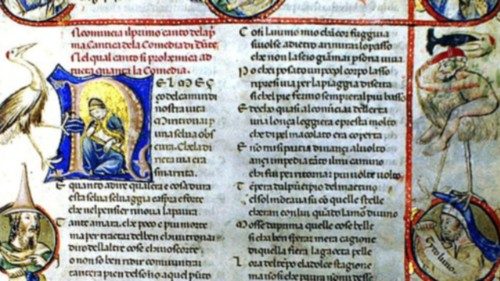 Ncomincia il primo canto dela pri
ma Cantica dela Comedia di Dante
Nel qual canto si prohemiça ad
tucta quanta la Comedia.
N EL MEÇ
ço del camin di
nostra uita
Mi ritrouai p
una selua obs
cura. Che la di
ritta uia era
smarrita.
E quanto adire qual era e cosa dura
esta selua seluaggia et aspra et forte
che nel penser rinoua la paura
Tant e amara che poco e piu morte
ma per trattar del ben chi ui trouai
diro dell altre cose chi uo scorte
I non so ben ridire com i u entrai
tant era pien del sono aquel punto
Cosi l animo mio ch ancor fuggiua
si uolse a dietro a rimirar lo passo
che non lascio giamai persona uiua
Po ch ei posato un poco l corpo lasso
ripresi uia per la piaggia diserta
si che l pie fermo sempre era l piu basso
Et ecco quasi al cominciar dell erta
una lonça leggiera e presta molto
che di pel macolato era couerta
E non mi si partia dinançi al uolto
ançi impedia tanto il mio camino
ch i fui per ritornar piu uolte uolto
Temp era dal principio del mattino
e l sol montaua su con quelle stelle
ch eran con lui quando l amor diuino
Mosse da prima quelle cose belle
si ch a bene sperar m era cagione
di quella fiera la gaetta pelle
L ora del tempo e la dolce stagione
ma non si che paura non mi desse